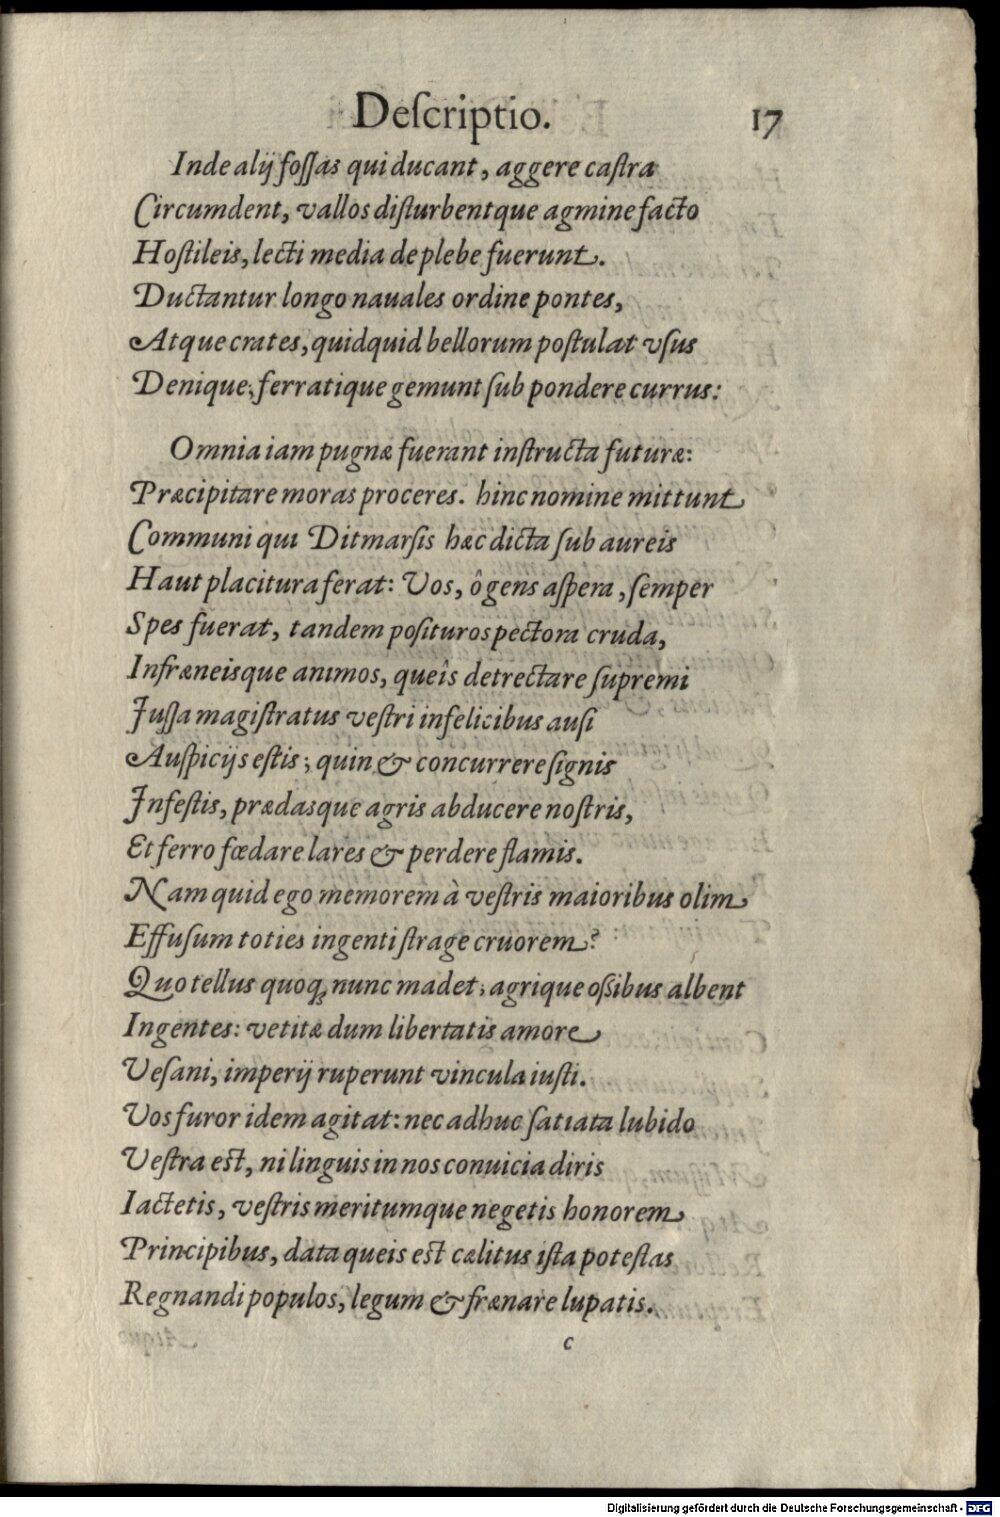 Deſcriptio. 17
Inde alij foſſas qui ducant, aggere caſtra
Circumdent, vallos diſturbentque agmine facto
Hoſtileis, lecti media de plebe fuerunt.
Ductantur longo nauales ordine pontes,
Atque crates, quidquid bellorum poſtulat vſus
Denique; ferratique gemunt ſub pondere currus:
Omnia iam pugnæ fuerant inſtructa futuræ:
Præcipitare moras proceres. hinc nomine mittunt
Communi qui Ditmarſis hæc dicta ſub aureis
Haut placitura ferat: Vos, ô gens aſpera, ſemper
Spes fuerat, tandem poſituros pectora cruda,
Infræneisque animos, queîs detrectare ſupremi
Juſſa magiſtratus veſtri infelicibus auſi
Auſpicijs eſtis; quin & concurrere ſignis
Infeſtis, prædasque agris abducere noſtris,
Et ferro fœdare lares & perdere flamis.
Nam quid ego memorem à veſtris maioribus olim
Effuſum toties ingenti ſtrage cruorem?
Quo tellus quoq; nunc madet; agrique oſsibus albent
Ingentes: vetitæ dum libertatis amore
Veſani, imperij ruperunt vincula iuſti.
Vos furor idem agitat: nec adhuc ſatiata lubido
Veſtra eſt, ni linguis in nos conuicia diris
Iactetis, veſtris meritumque negetis honorem
Principibus, data queis eſt cælitus iſta poteſtas
Regnandi populos, legum & frænare lupatis.
c
Digitalisierung gefördert durch die Deutsche Forschungsgemeinschaft - DFG